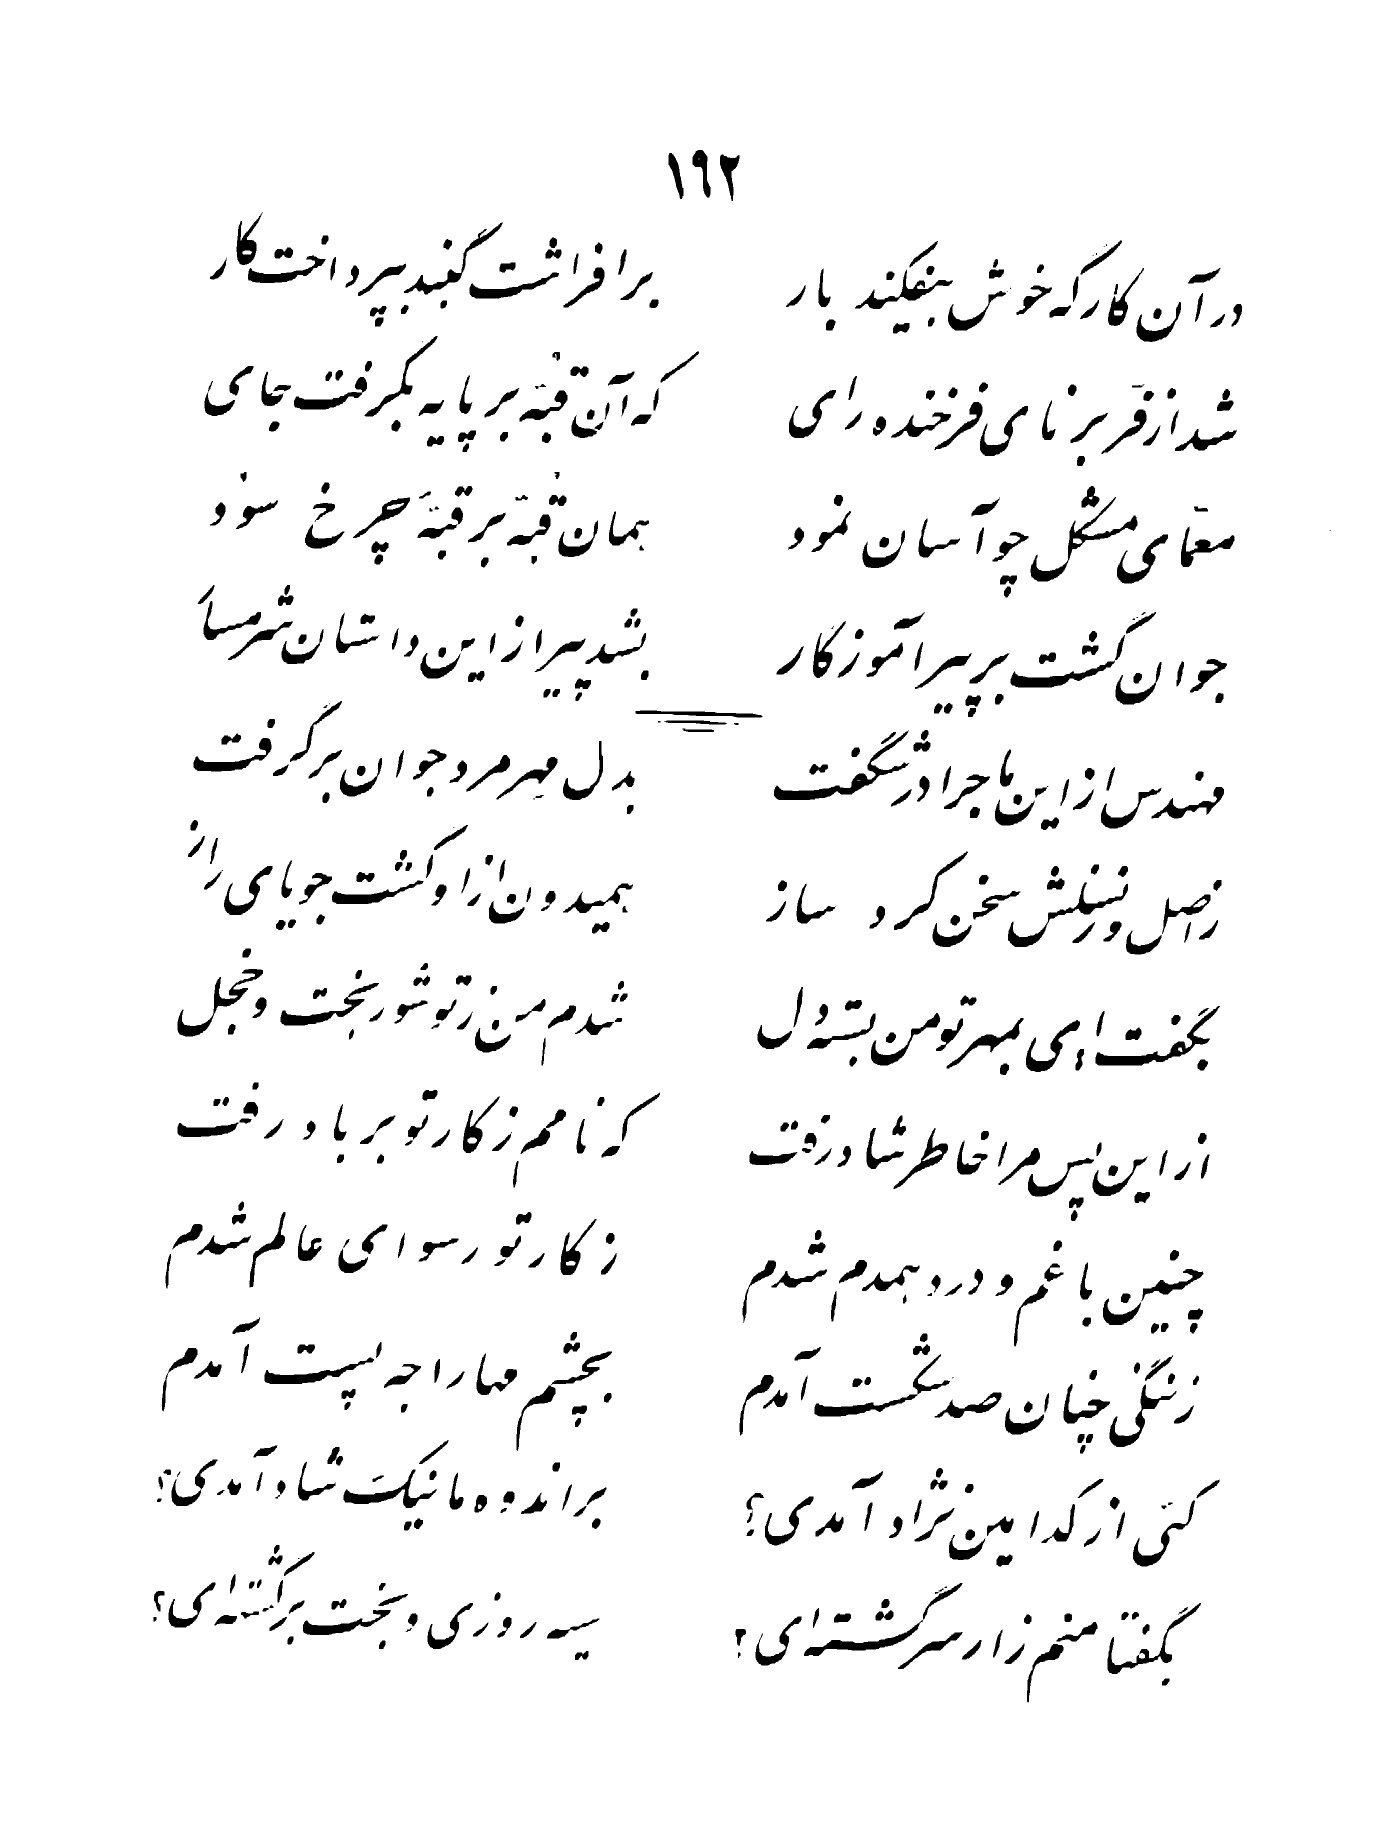 ۱۹۲
در آن کارگه خوش بیفکند بار
برافراشت گنبد بپرداخت کار
شد از فرّ برنای فرخنده رای
که آن قُبّه بر پایه بگرفت جای
معمّای مشکل چو آسان نمود
همان قُبّه بر قبّهَ چرخ سود
جوان گشت بر پیر آموزگار
بشد پیر از این داستان شرمسار
مهندس از این ماجرا در شگفت
بدل مهر مرد جوان برگرفت
ز اصل و ز نسلش سخن کرد ساز
همیدون از او گشت جویای راز
بگفت ای بمهر تو من بسته دل
شدم من ز تو شوربخت و خجل
از این پس مرا خاطر شاد رفت
که نامم ز کار تو بر باد رفت
چنین با غم و درد همدم شدم
ز کار تو رسوای عالم شدم
ز ننگی چنان صد شکست آمدم
بچشم مهاراجه پست آمدم
کئی از کدامین نژاد آمدی؟
بر اندوه ما نیک شاد آمدی؟
بگفتا منم زار سرگشته‌ای؟
سیه روزی و بخت برگشته‌ای؟